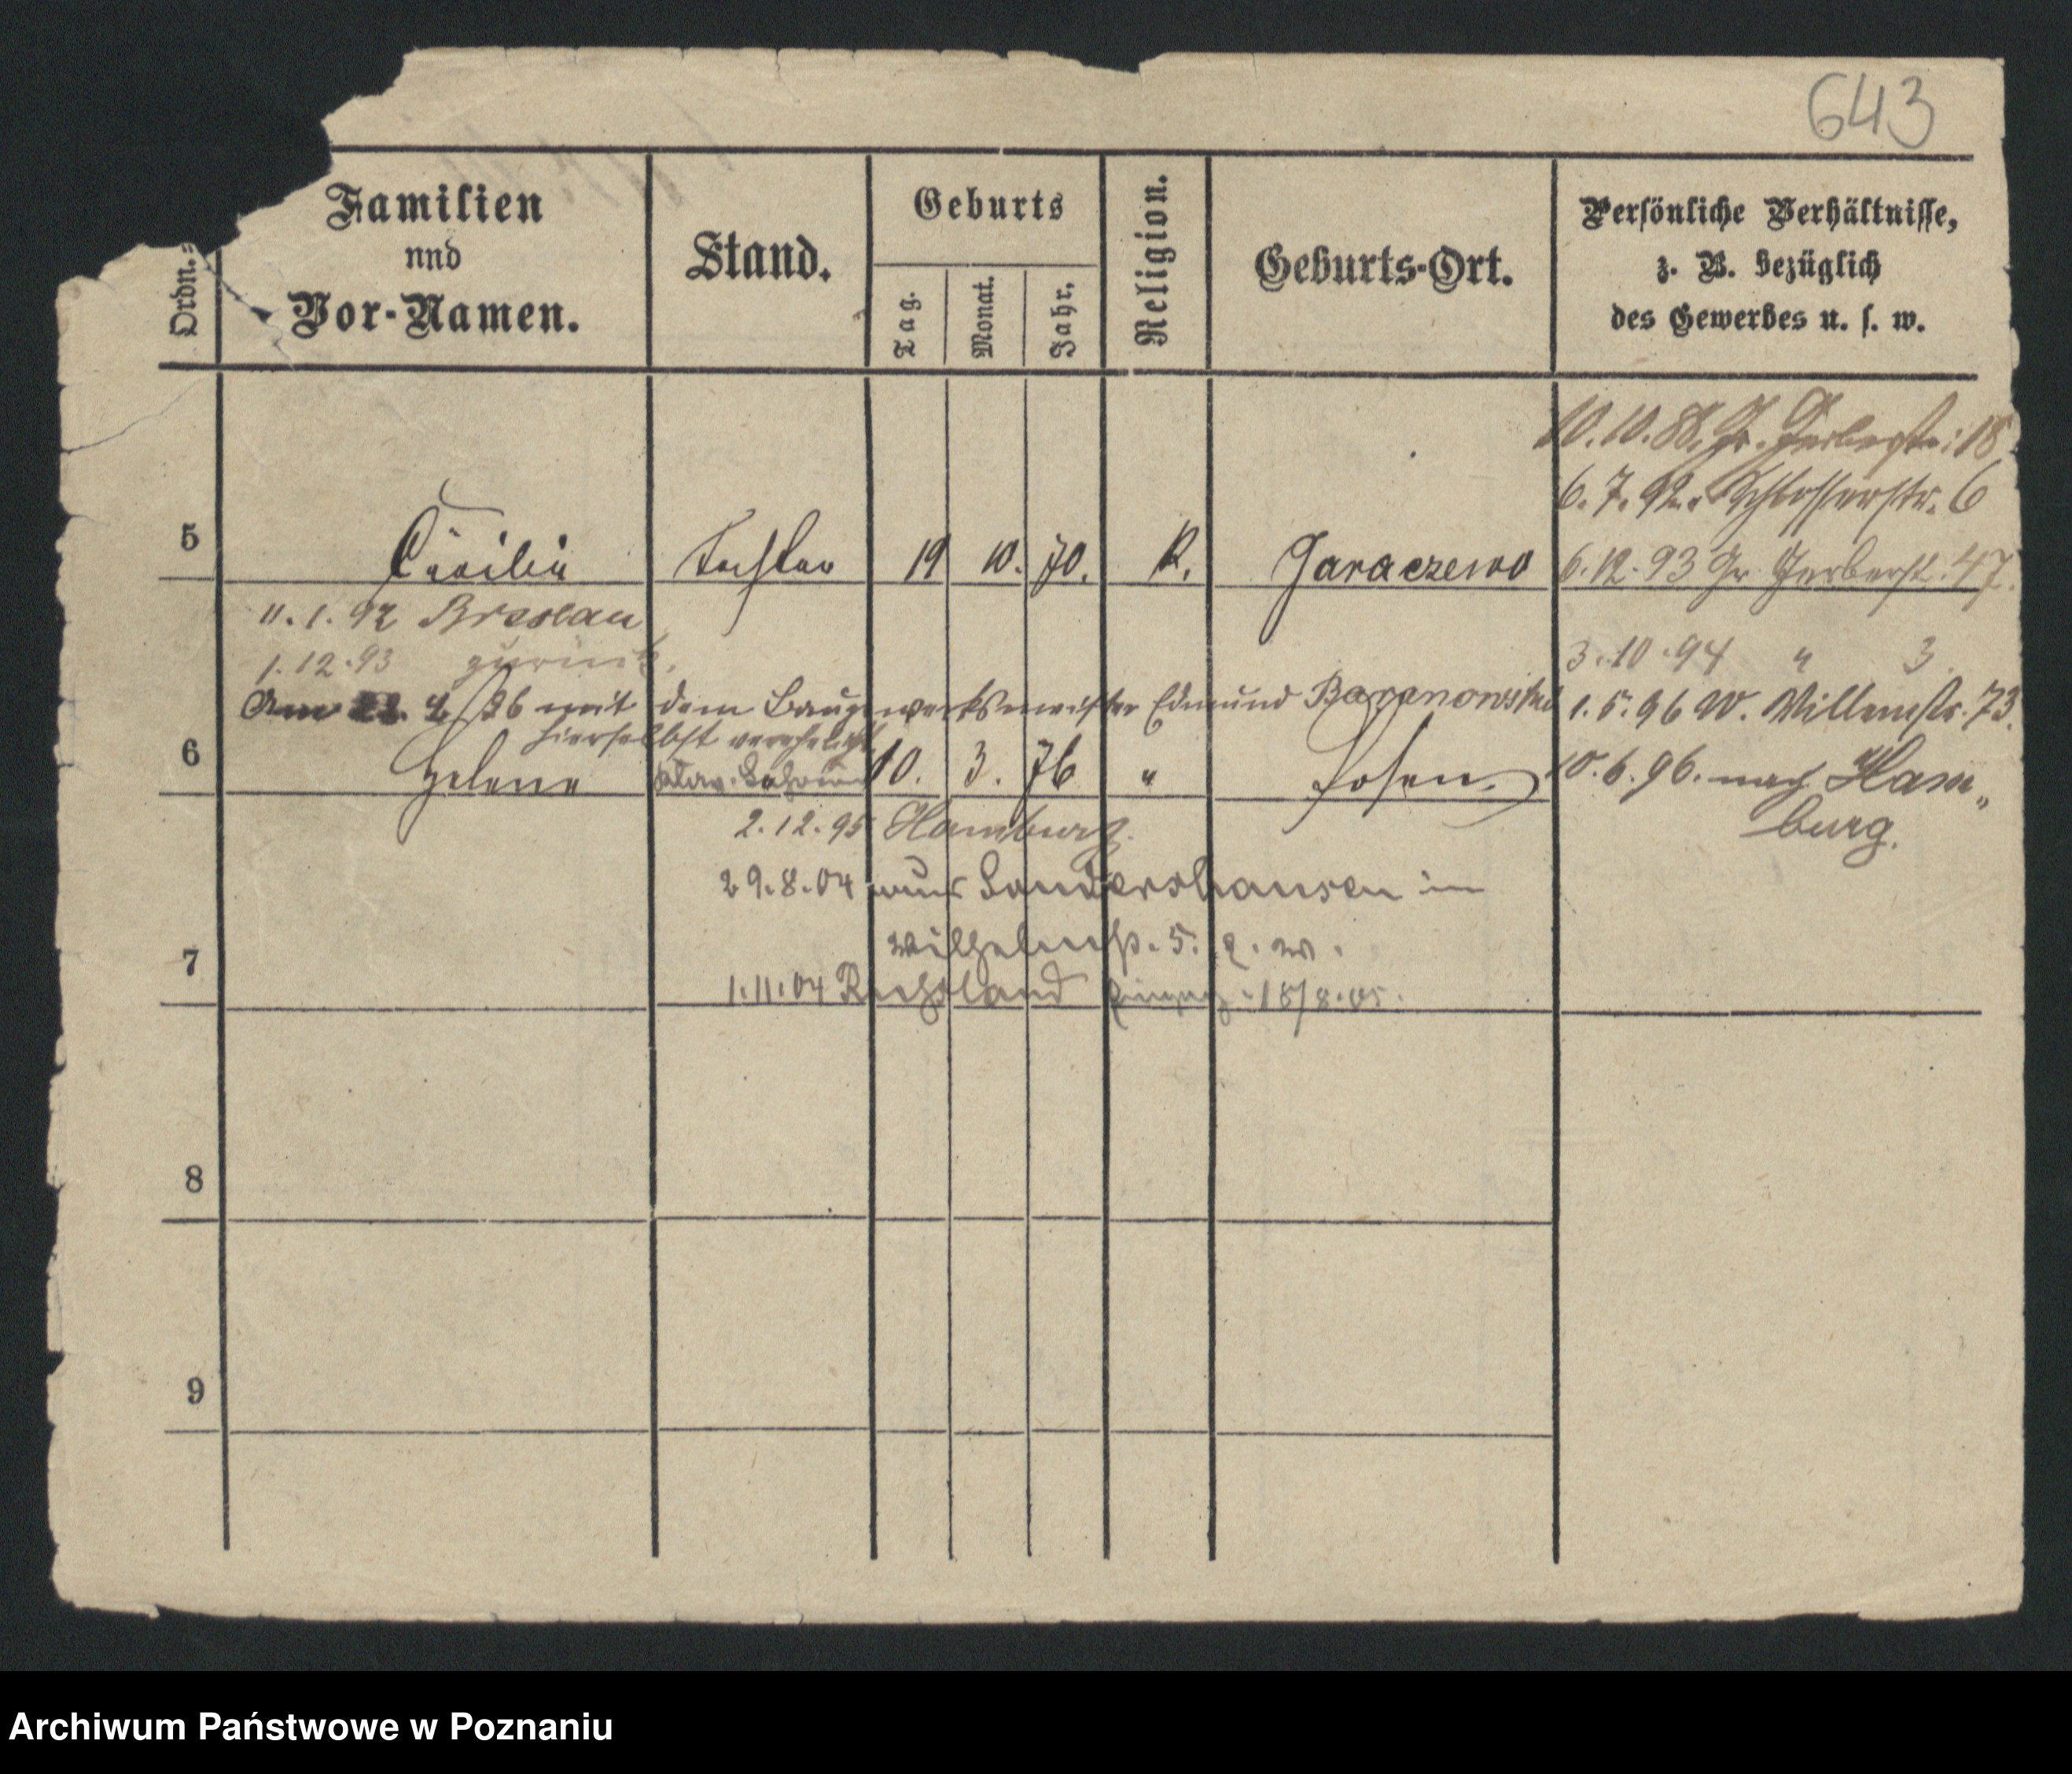 643
Ordn.-
Familien
und
Vor-Namen.
Stand.
Geburts
Tag.
Monat.
Jahr.
Religion.
Geburts-Ort.
Persönliche Verhältnisse,
z. B. bezüglich
des Gewerbes u. s. w.
10.10.88. Gr. Gerberstr. 18
6.7.92. Schlosserstr. 6
5 Cäcilie Tochter 19 10. 70. K. Jaraczewo 6.12.93 Gr. Gerberst. 47.
11.1.92 Breslau
1.12.93 zurück.
3.10.94 " 3.
Am 4/ 86 mit dem Baugewerksmeister Edmund Baranowski
hierselbst verehelicht
1.5.96 W. Willemstr. 73.
6 Helene 10. 3. 76 " Posen. 10.6.96. nach Ham„
burg.
2.12.95 Hamburg.
29.8.04 aus Sondershausen in
Wilhelmstr. 5. z. w.
1.11.04 18/8.05.
7
8
9
Archiwum Państwowe w Poznaniu